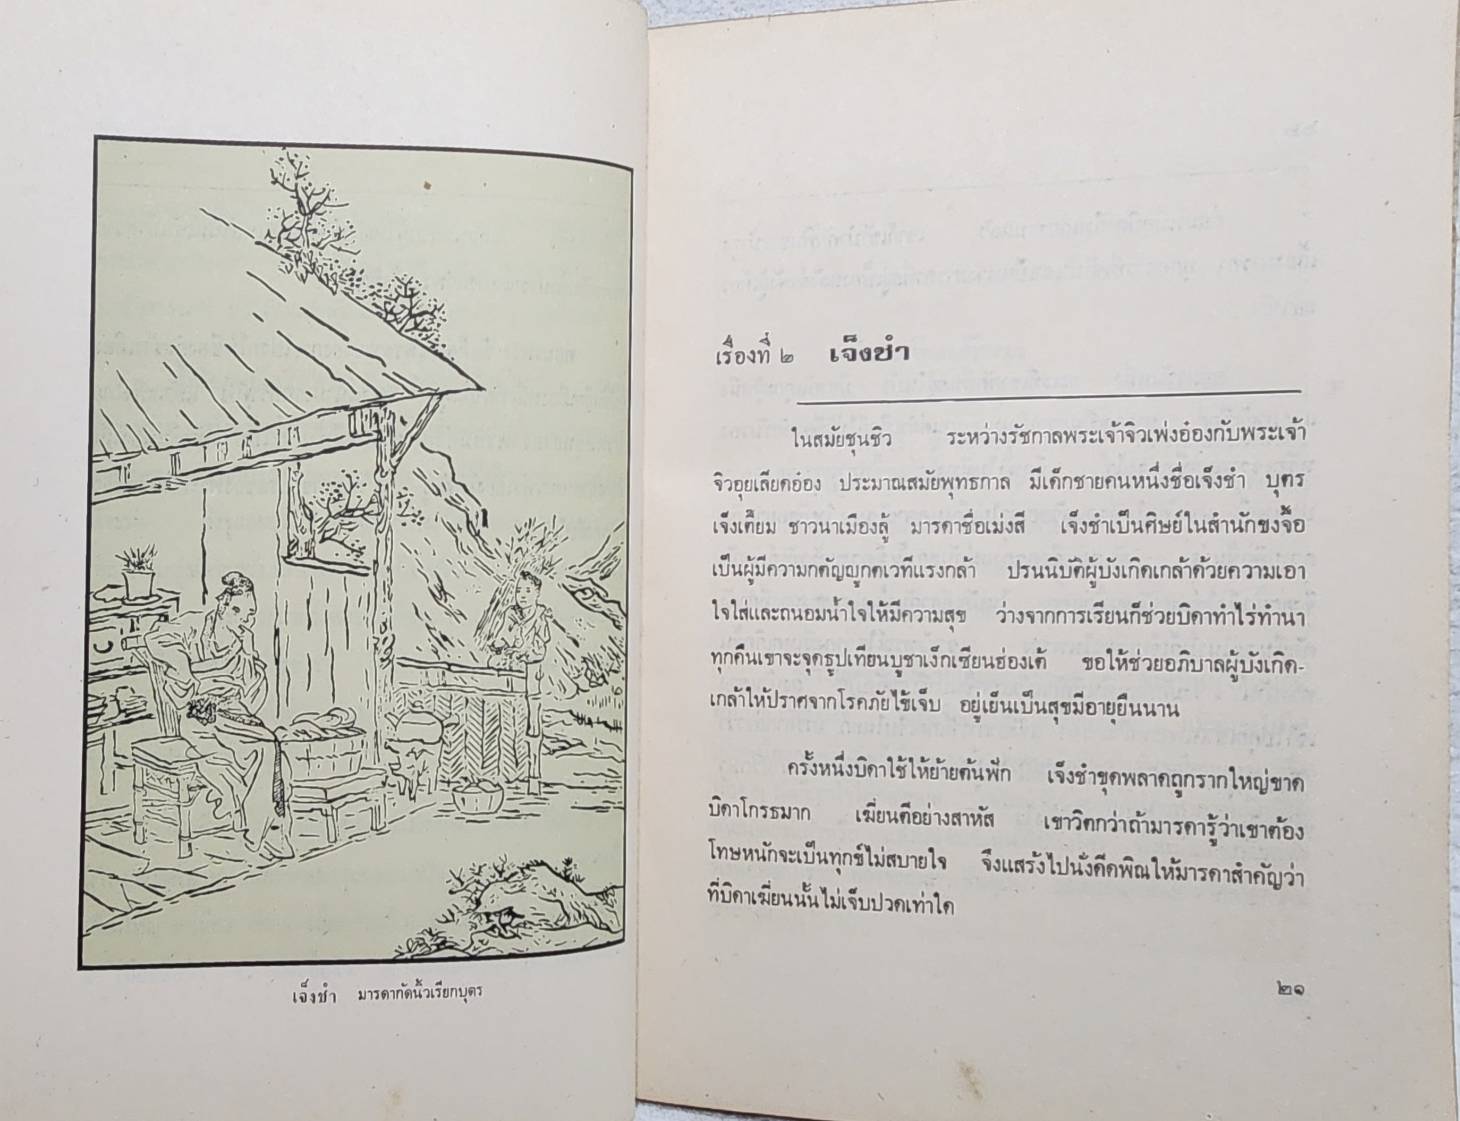 เจ็งชำ มารดากัดนิ้วเรียกบุตร
เรื่องที่ ๒ เจ็งชำ
ในสมัยชุนชิว ระหว่างรัชกาลพระเจ้าจิวเพ่งอ๋องกับพระเจ้า
จิวอุยเลียดอ๋อง ประมาณสมัยพุทธกาล มีเด็กชายคนหนึ่งชื่อเจ็งชำ บุตร
เจ็งเตี็ยม ชาวนาเมืองลู้ มารดาชื่อเม่งสี เจ็งชำเป็นศิษย์ในสำนักขงจื๊อ
เป็นผู้มีความกตัญญูกตเวทีแรงกล้า ปรนนิบัติผู้บังเกิดเกล้าด้วยความเอา
ใจใส่และถนอมน้ำใจให้มีความสุข ว่างจากการเรียนก็ช่วยบิดาทำไร่ทำนา
ทุกคืนเขาจะจุดธูปเทียนบูชาเง็กเซียนฮ่องเต้ ขอให้ช่วยอภิบาลผู้บังเกิด-
เกล้าให้ปราศจากโรคภัยไข้เจ็บ อยู่เย็นเป็นสุขมีอายุยืนนาน
ครั้งหนึ่งบิดาใช้ให้ย้ายต้นฟัก เจ็งชำขุดพลาดถูกรากใหญ่ขาด
บิดาโกรธมาก เฆี่ยนตีอย่างสาหัส เขาวิตกว่าถ้ามารดารู้ว่าเขาต้อง
โทษหนักจะเป็นทุกข์ไม่สบายใจ จึงแสร้งไปนั่งดีดพิณให้มารดาสำคัญว่า
ที่บิดาเฆี่ยนนั้นไม่เจ็บปวดเท่าใด
๒๑